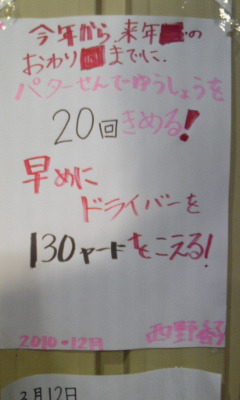 今年から来年の
おわりまでに、
パターせんでゆうしょうを
20回きめる!
早めに
ドライバーを
130ヤードをこえる!
2010.12月 西野
3月12日